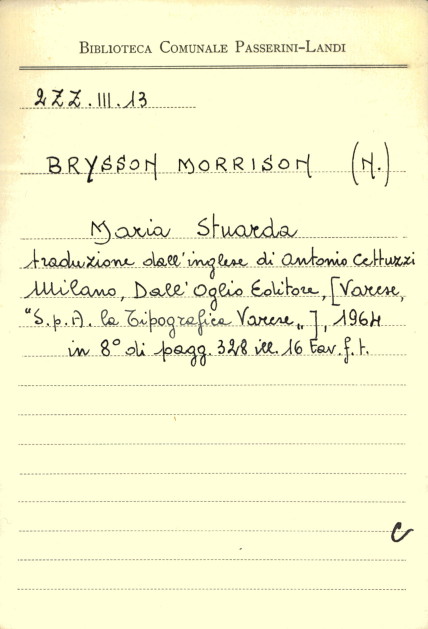 BIBLIOTECA COMUNALE PASSERINI-LANDI
2ZZ.III.13
BRYSSON MORRISON (N.)
Maria Stuarda
traduzione dall'inglese di Antonio Cettuzzi
Milano, Dall'Oglio Editore, [Varese,
"S.p.A. la Tipografica Varese„], 1964
in 8° di pagg. 328 ill. 16 tav. f. t.
C